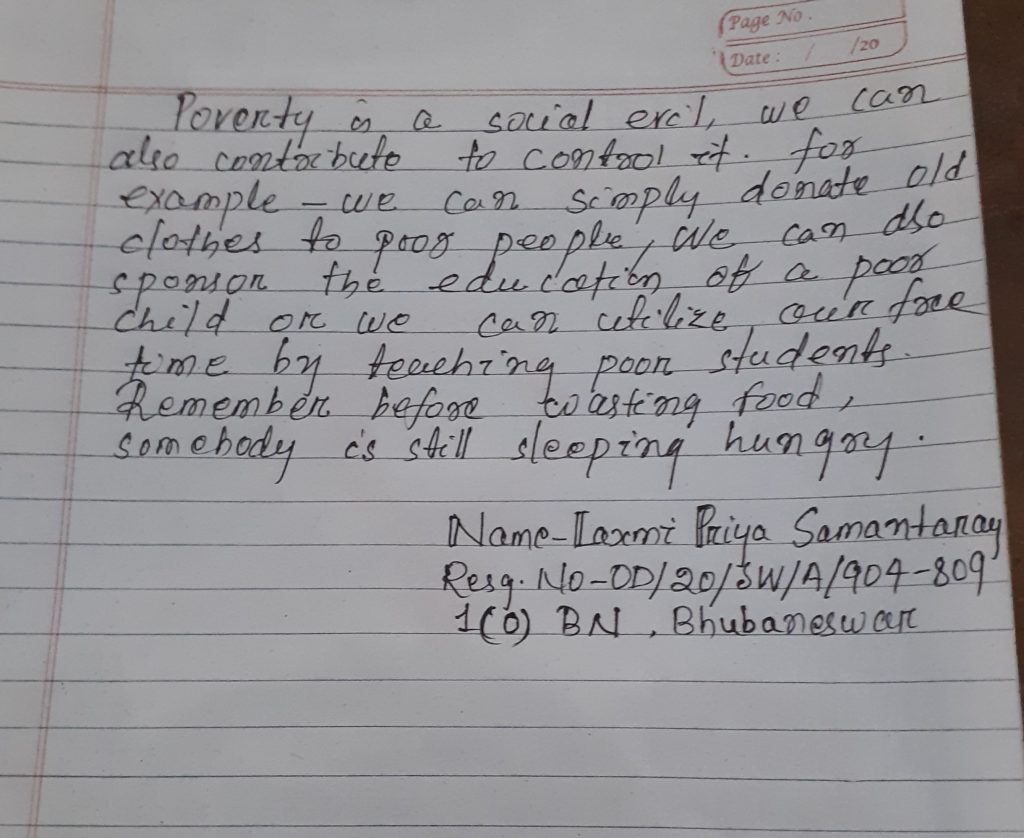 Page No.
Date: / /20
Poverty is a social evil, we can
also contribute to control it. for
example - we can simply donate old
clothes to poor people, We can also
sponsor the education of a poor
child or we can utilize our free
time by teaching poor students.
Remember before wasting food,
somebody is still sleeping hungry.
Name-Laxmi Priya Samantaray
Resg. No-OD/20/SW/A/904-809
1(O) BN, Bhubaneswar